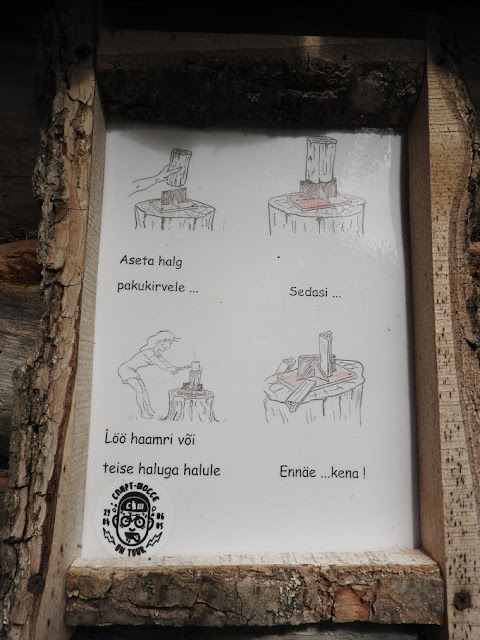 Aseta halg
pakukirvele ...
Sedasi ...
Löö haamri või
teise haluga halule
Ennäe ...kena !
СПАРТ-ШОССЕ
ON TOUR